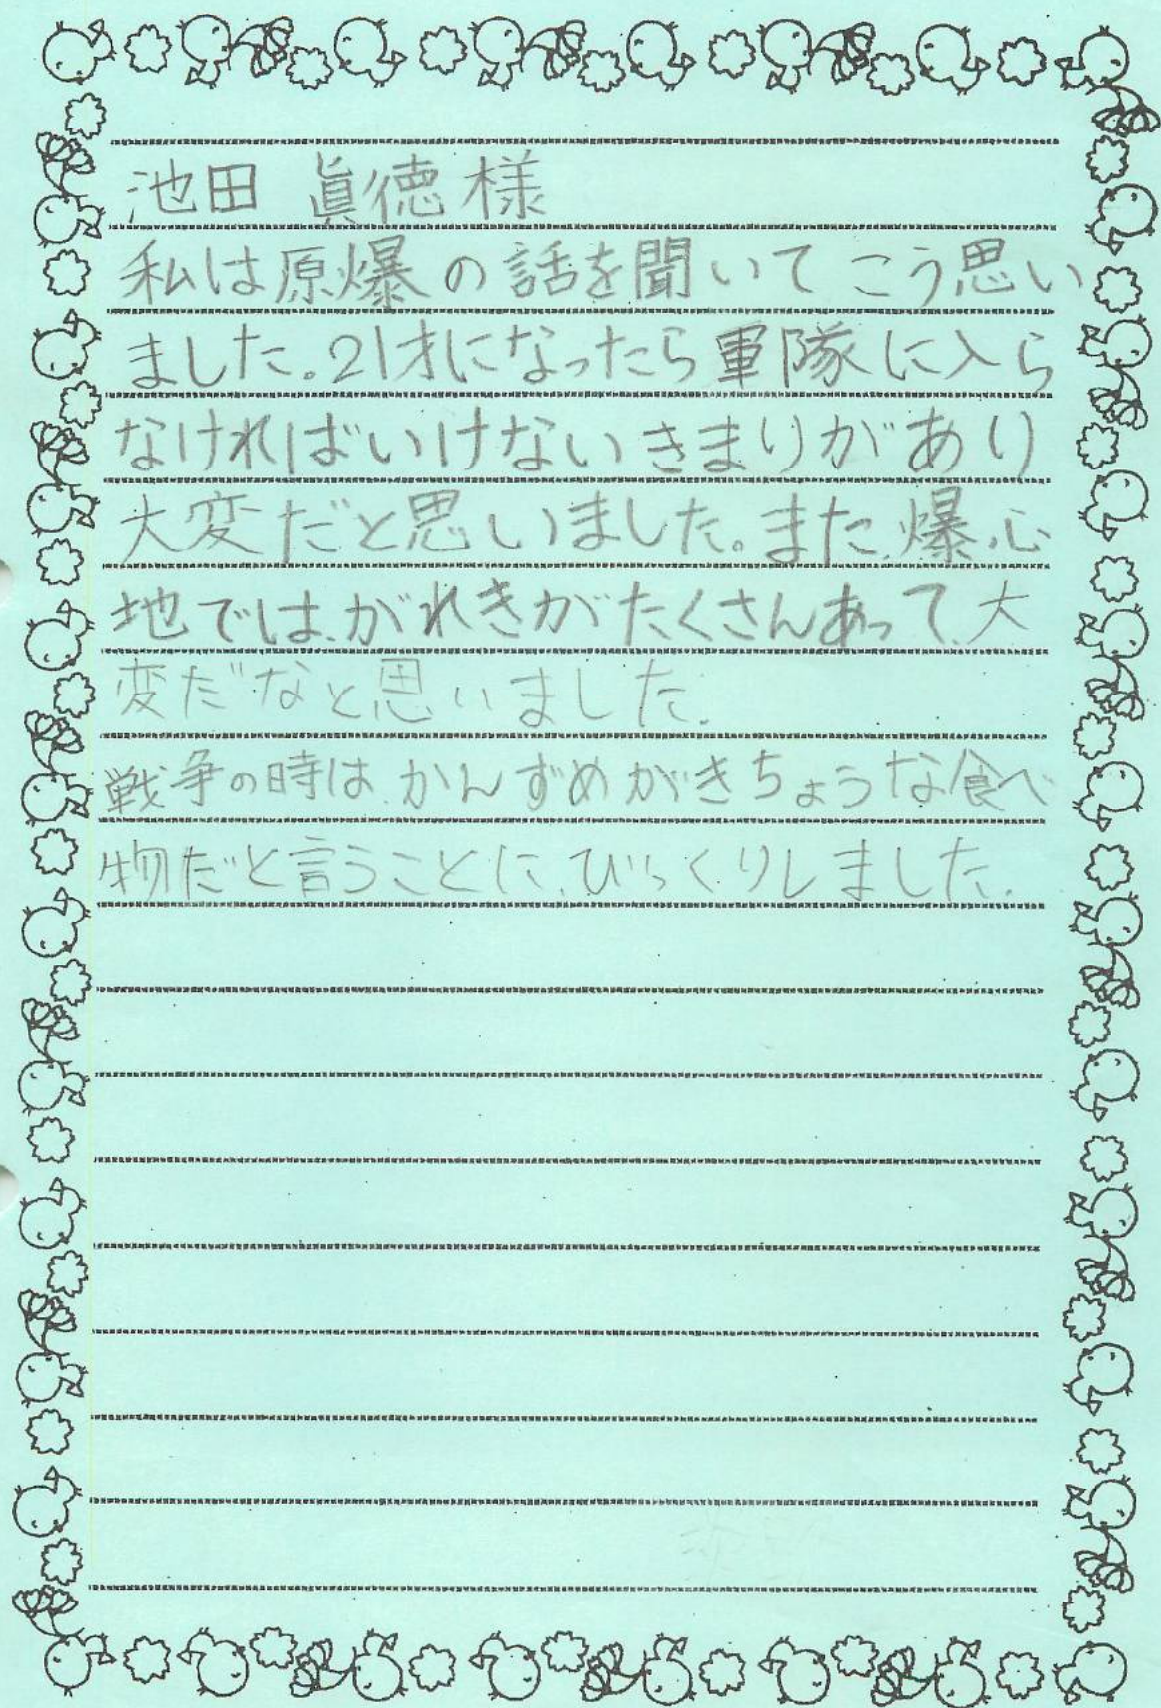 池田 眞徳様
私は原爆の話を聞いてこう思い
ました。21才になったら軍隊に入ら
なければいけないきまりがあり
大変だと思いました。また、爆心
地では、がれきがたくさんあって、大
変だなと思いました。
戦争の時は、かんずめがきちょうな食べ
物だと言うことに、びっくりしました。